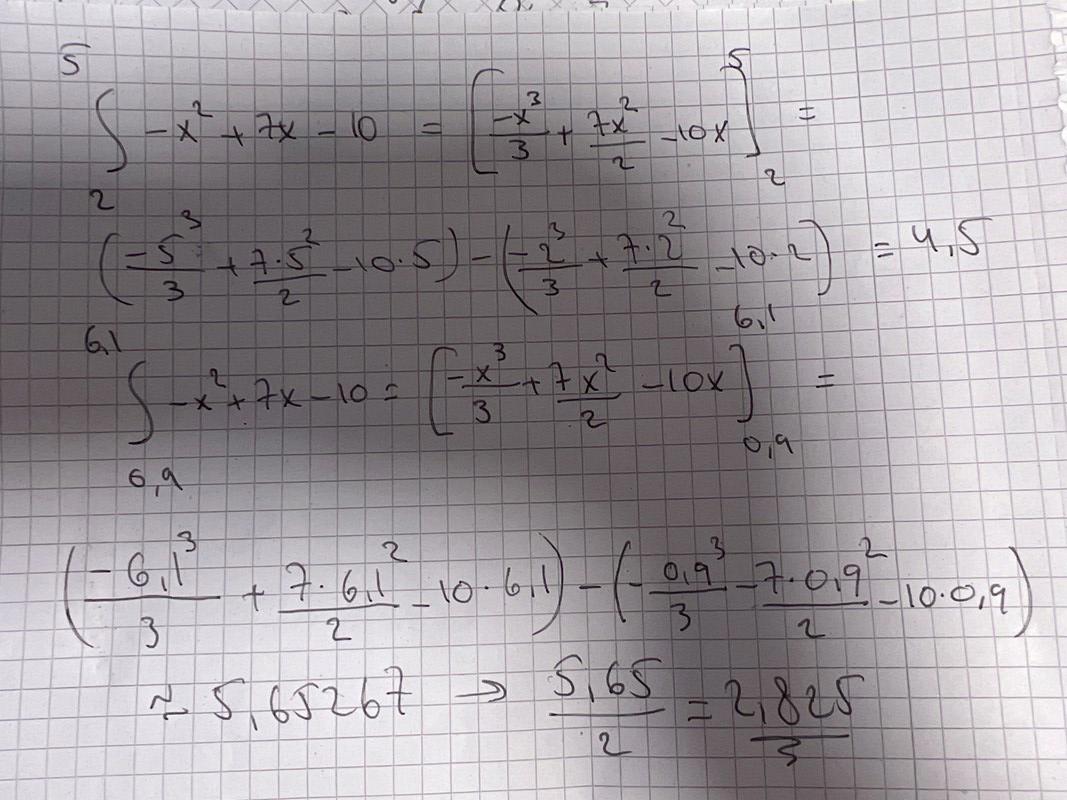 ∫₂⁵ -x² + 7x - 10 = [-x³/3 + 7x²/2 - 10x]₂⁵ =
(-5³/3 + 7·5²/2 - 10·5) - (-2³/3 + 7·2²/2 - 10·2) = 4,5
∫₆,₉^6,1 -x² + 7x - 10 = [-x³/3 + 7x²/2 - 10x]₀,₉^6,1 =
(-6,1³/3 + 7·6,1²/2 - 10·6,1) - (-0,9³/3 - 7·0,9²/2 - 10·0,9)
≈ 5,65267 → 5,65/2 = 2,825/3